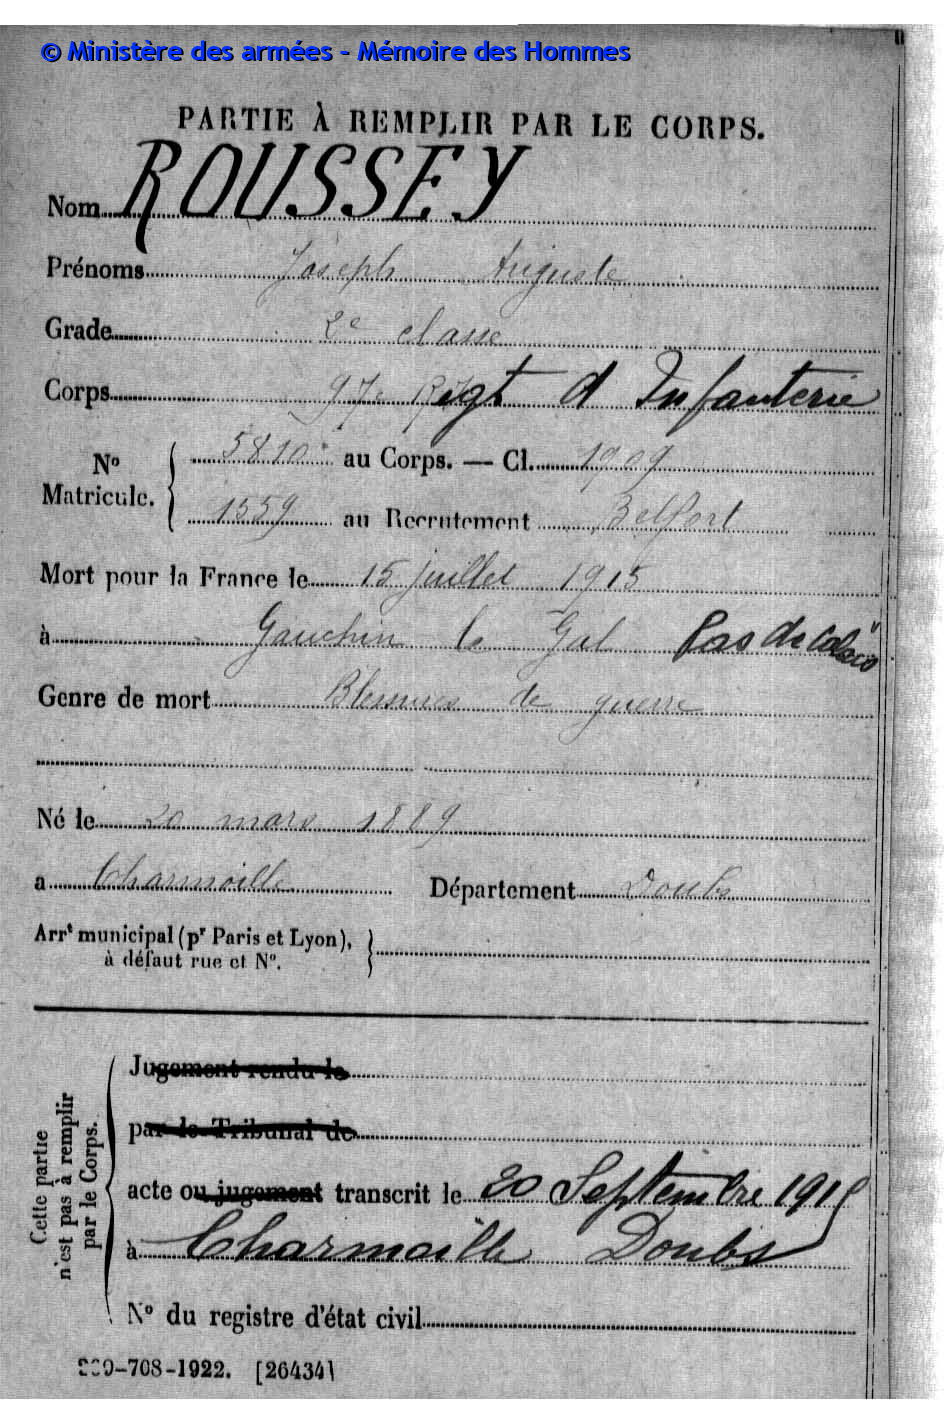 © Ministère des armées - Mémoire des Hommes
PARTIE À REMPLIR PAR LE CORPS.
Nom ROUSSEY
Prénoms Joseph Auguste
Grade 2e classe
Corps 97e Regt d Infanterie
No Matricule. 5810 au Corps. — Cl. 1909
1559 au Recrutement Belfort
Mort pour la France le 15 juillet 1915
à Gauchin le Gal Pas de Calais
Genre de mort Blessures de guerre
Né le 20 mars 1889
a Charmoille Département Doubs
Arrt municipal (pr Paris et Lyon),
à défaut rue et No.
Cette partie n'est pas à remplir par le Corps.
Jugement rendu le
par le Tribunal de
acte ou jugement transcrit le 20 Septembre 1915
à Charmoille Doubs
No du registre d'état civil
-708-1922. [26434]